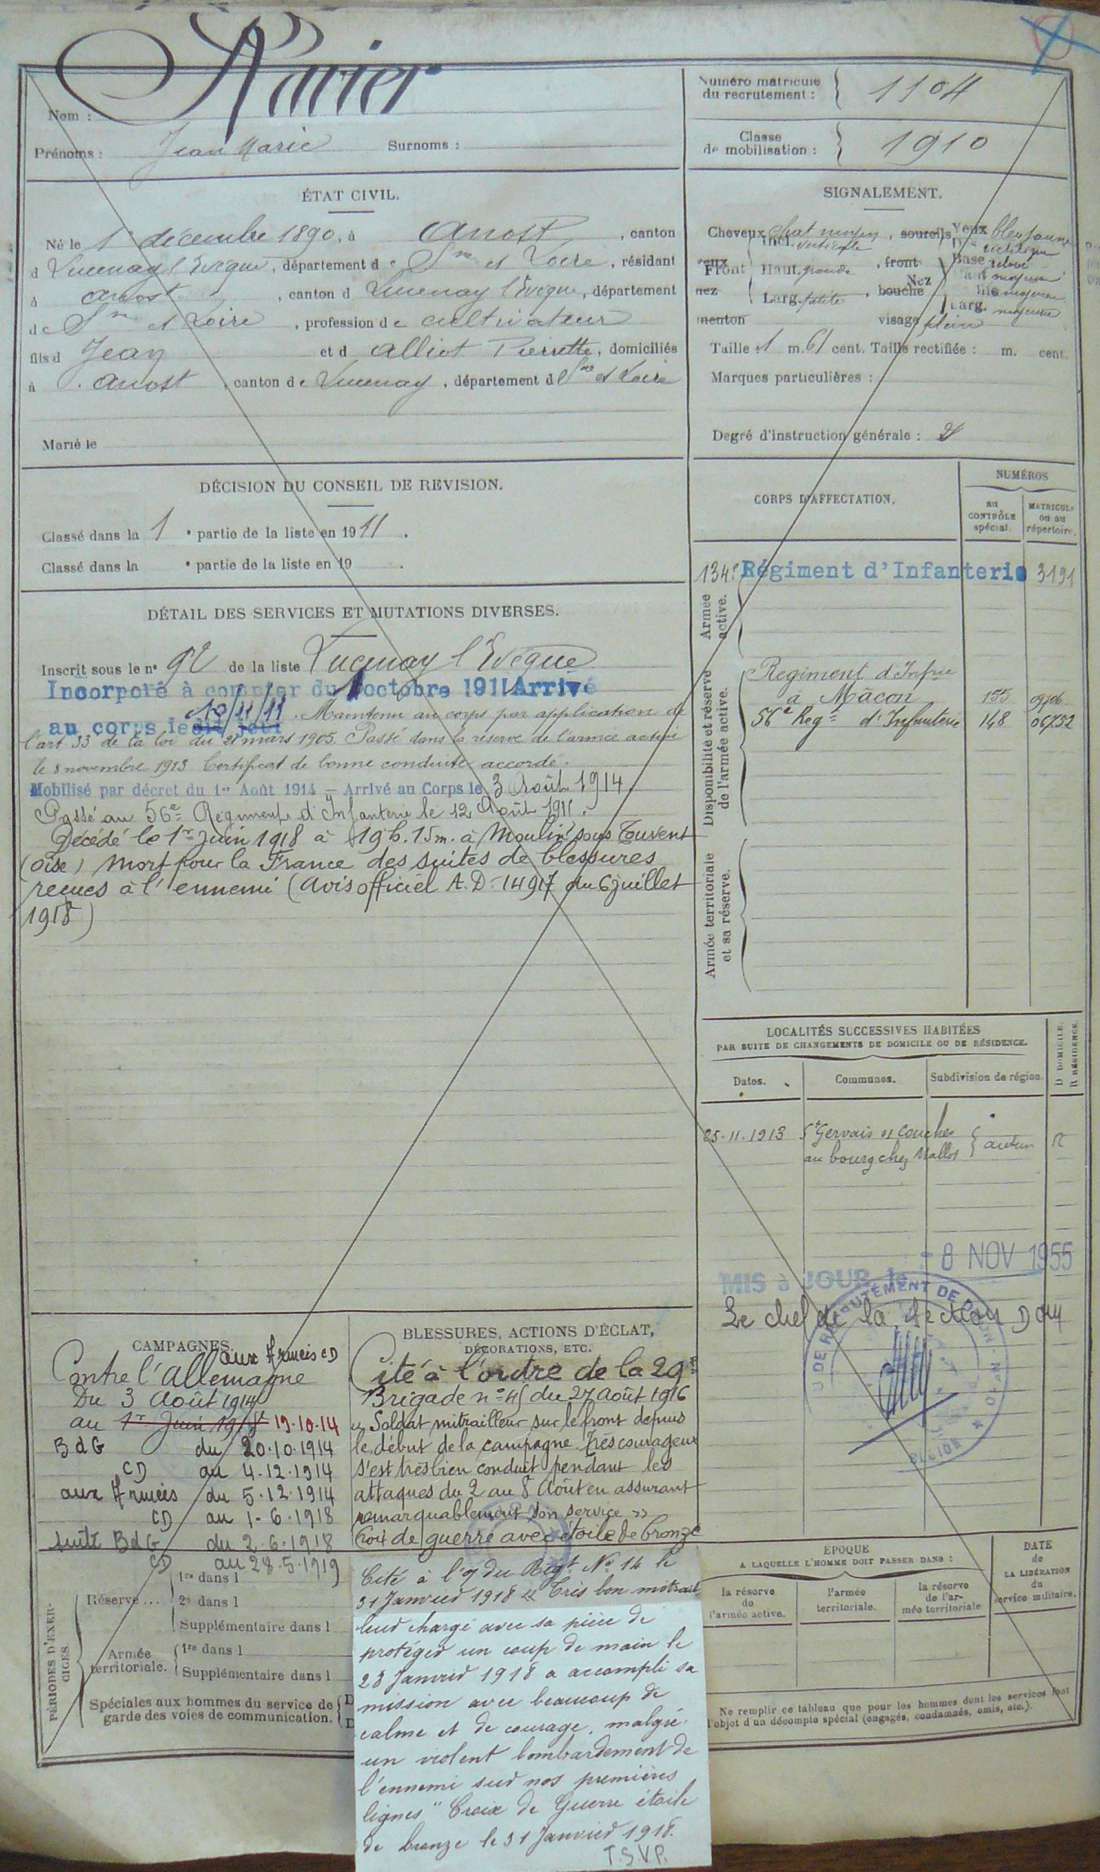 Nom : Rarier
Prénoms : Jean Marie Surnoms :
Numéro matricule du recrutement : 1104
Classe de mobilisation : 1910
ÉTAT CIVIL.
Né le 1er décembre 1890, à Anost, canton
d Lucenay l'Evêque, département de Sne et Loire, résidant
à Anost, canton d Lucenay l'Evêque, département
de Sne et Loire, profession de cultivateur
fils d Jean et d Alliot Pierrette, domiciliés
à Anost, canton de Lucenay, département d Sne et Loire
Marié le
SIGNALEMENT.
Cheveux chat moyen, sourcils Yeux bleu jaune
yeux Front Incl. verticale, front Nez Base relevé
Haut. grande moyenne
nez Larg. petite, bouche Larg. moyenne
menton visage plein
Taille : 1 m. 61 cent. Taille rectifiée : m. cent.
Marques particulières :
Degré d'instruction générale : 2
DÉCISION DU CONSEIL DE REVISION.
Classé dans la 1 e partie de la liste en 1911.
Classé dans la e partie de la liste en 19 .
DÉTAIL DES SERVICES ET MUTATIONS DIVERSES.
Inscrit sous le n° 92 de la liste Lucenay l'Evêque
Incorporé à compter du 1 octobre 1911 Arrivé
au corps le 10/11/11. Maintenu au corps par application de
l'art 33 de la loi du 21 mars 1905. Passé dans la réserve de l'armée active
le 8 novembre 1913. Certificat de bonne conduite accordé.
Mobilisé par décret du 1er Août 1914 – Arrivé au Corps le 3 Août 1914
Passé au 56e Régiment d'Infanterie le 12 Août 1911.
Décédé le 1er Juin 1918 à 19h.15m. à Moulin sous Touvent
(Oise) Mort pour la France des suites de blessures
reçues à l'ennemi (avis officiel A.D. 14917 du 6 juillet
1918)
CORPS D'AFFECTATION.
NUMÉROS
au CONTRÔLE spécial.
MATRICULE ou au répertoire.
Armée active.
134e Régiment d'Infanterie 3191
Disponibilité et réserve de l'armée active.
Régiment d'Infrie
à Mâcon 155
56e Regt d'Infanterie 148 06732
Armée territoriale et sa réserve.
LOCALITÉS SUCCESSIVES HABITÉES
PAR SUITE DE CHANGEMENTS DE DOMICILE OU DE RÉSIDENCE.
Dates. Communes. Subdivision de région. D DOMICILE. R RÉSIDENCE.
25.11.1913 St Gervais s/ Couches
au bourg chez Mallot Autun R
MIS à JOUR le 8 NOV 1955
Le chef de la Section
CAMPAGNES.
aux Armées CD
Contre l'Allemagne
Du 3 Août 1914
au 1er Juin 1918 19.10.14
BdG du 20.10.1914
CD au 4.12.1914
aux Armées du 5.12.1914
CD au 1.6.1918
suite BdG du 2.6.1918
CD au 28.5.1919
BLESSURES, ACTIONS D'ÉCLAT,
DÉCORATIONS, ETC.
Cité à l'ordre de la 29e
Brigade n° 45 du 27 Août 1916
« Soldat mitrailleur sur le front depuis
le début de la campagne. Très courageux
s'est très bien conduit pendant les
attaques du 2 au 8 Août en assurant
remarquablement son service »
Croix de guerre avec étoile de bronze
Cité à l'O du Regt N° 14 le
31 Janvier 1918 « Très bon mitrail
leur chargé avec sa pièce de
protéger un coup de main le
28 Janvier 1918 a accompli sa
mission avec beaucoup de
calme et de courage, malgré
un violent bombardement de
l'ennemi sur nos premières
lignes" Croix de Guerre étoile
de bronze le 31 Janvier 1918.
T.S.V.P.
PÉRIODES D'EXERCICES
Réserve... 1re dans l
2e dans l
Supplémentaire dans l
Armée territoriale. 1re dans l
Supplémentaire dans l
Spéciales aux hommes du service de
garde des voies de communication.
ÉPOQUE
A LAQUELLE L'HOMME DOIT PASSER DANS :
la réserve de l'armée active.
l'armée territoriale.
la réserve de l'armée territoriale
DATE de LA LIBÉRATION du service militaire.
Ne remplir ce tableau que pour les hommes dont les services font
l'objet d'un décompte spécial (engagés, condamnés, omis, etc.).